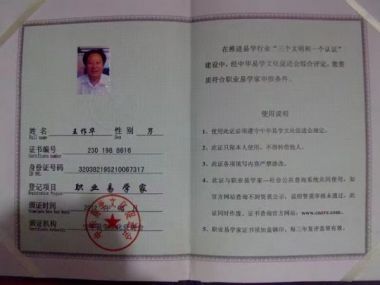 姓 名 王作华 性 别 男
Full name Sex
证书编号 230 198 8616
Certificate number
身份证号码 320382195210067317
ID NO.
登记项目 职业易学家
颁证时间
颁证机构
在推进易学行业“三个文明和一个认证”
建设中，经中华易学文化促进会综合评定，您资
质符合职业易学家申报条件。
使用说明
1、使用此证必须遵守中华易学文化促进会规定。
2、此证只限本人使用，不得转借他人。
3、此证各项填写内容严禁涂改。
4、此证与职业易学家—社会公共查询系统共同使用，如
官方网站查询不到资质公示，说明暂资审核未通过，此
证同时作废。证书查询官方网站：
5、职业易学家证书须加盖钢印，每二年复评盖章有效。